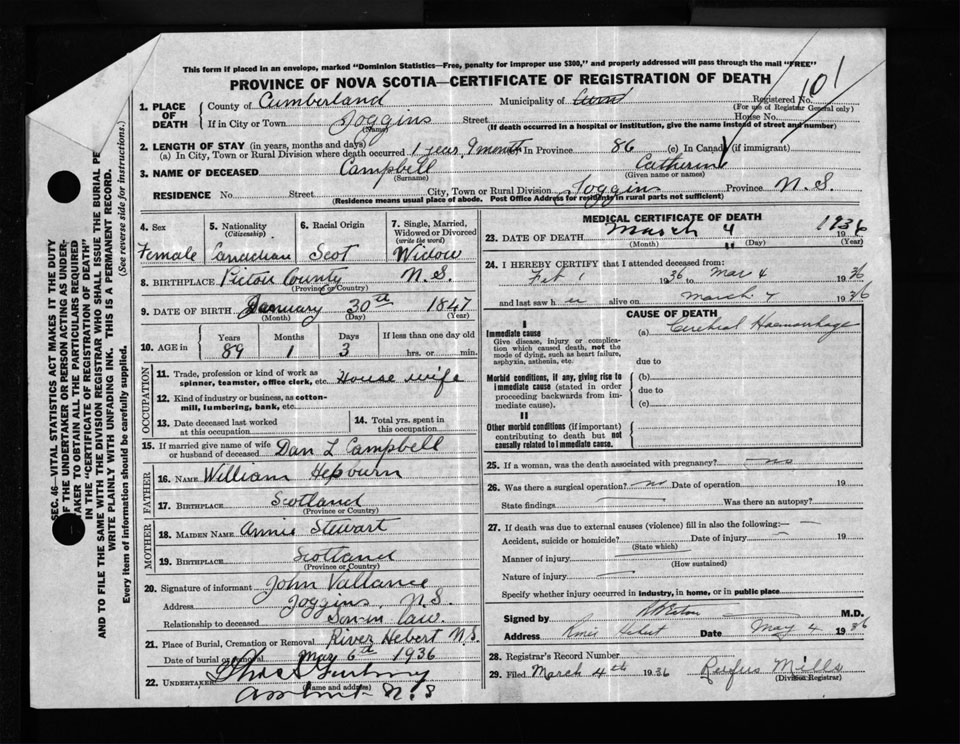 This form if placed in an envelope, marked "Dominion Statistics—Free, penalty for improper use $300," and properly addressed will pass through the mail "FREE"
PROVINCE OF NOVA SCOTIA—CERTIFICATE OF REGISTRATION OF DEATH
101
1. PLACE OF DEATH
County of Cumberland Municipality of Registered No.
(For use of Registrar General only)
If in City or Town Joggins Street House No.
(Name) (If death occurred in a hospital or institution, give the name instead of street and number)
2. LENGTH OF STAY (in years, months and days)
(a) In City, Town or Rural Division where death occurred 1 year 9 months In Province 86 (c) In Canada (if immigrant)
3. NAME OF DECEASED Campbell Catherine
(Surname) (Given name or names)
RESIDENCE No. Street City, Town or Rural Division Joggins Province N. S.
(Residence means usual place of abode. Post Office Address for residents in rural parts not sufficient)
4. Sex Female
5. Nationality (Citizenship) Canadian
6. Racial Origin Scot
7. Single, Married, Widowed or Divorced (write the word) Widow
8. BIRTHPLACE Pictou County N. S.
(Province or Country)
9. DATE OF BIRTH January 30th 1847
(Month) (Day) (Year)
10. AGE in Years 89 Months 1 Days 3 If less than one day old
hrs. or min.
OCCUPATION
11. Trade, profession or kind of work as spinner, teamster, office clerk, etc. House wife
12. Kind of industry or business, as cotton-mill, lumbering, bank, etc.
13. Date deceased last worked at this occupation
14. Total yrs. spent in this occupation
15. If married give name of wife or husband of deceased Dan L Campbell
FATHER
16. NAME William Hepburn
17. BIRTHPLACE Scotland
(Province or Country)
MOTHER
18. MAIDEN NAME Annie Stewart
19. BIRTHPLACE Scotland
(Province or Country)
20. Signature of informant John Vallance
Address Joggins, N. S.
Relationship to deceased Son-in law
21. Place of Burial, Cremation or Removal River Hebert N. S.
Date of burial or removal Mar 6th 1936
22. UNDERTAKER
(Name and address)
N. S
MEDICAL CERTIFICATE OF DEATH
23. DATE OF DEATH March 4 1936
(Month) (Day) (Year)
24. I HEREBY CERTIFY that I attended deceased from:
Feb 1 1936 to Mar 4 1936
and last saw her alive on March 4 1936
CAUSE OF DEATH
I
Immediate cause
Give disease, injury or complication which caused death, not the mode of dying, such as heart failure, asphyxia, asthenia, etc.
(a) Cerebral Haemorrhage
due to
Morbid conditions, if any, giving rise to immediate cause (stated in order proceeding backwards from immediate cause).
(b)
due to
(c)
II
Other morbid conditions (if important) contributing to death but not causally related to immediate cause.
25. If a woman, was the death associated with pregnancy? no
26. Was there a surgical operation? no Date of operation 19
State findings Was there an autopsy?
27. If death was due to external causes (violence) fill in also the following:
Accident, suicide or homicide? Date of injury 19
(State which)
Manner of injury
(How sustained)
Nature of injury
Specify whether injury occurred in industry, in home, or in public place
Signed by M.D.
Address Date May 4 1936
28. Registrar's Record Number
29. Filed March 4th 1936 Rufus Mills
(Division Registrar)
SEC. 46—VITAL STATISTICS ACT MAKES IT THE DUTY
OF THE UNDERTAKER OR PERSON ACTING AS UNDER-
TAKER TO OBTAIN ALL THE PARTICULARS REQUIRED
IN THE "CERTIFICATE OF REGISTRATION OF DEATH"
AND TO FILE THE SAME WITH THE DIVISION REGISTRAR WHO SHALL ISSUE THE BURIAL PE
WRITE PLAINLY WITH UNFADING INK. THIS IS A PERMANENT RECORD.
Every item of information should be carefully supplied. (See reverse side for instructions.)